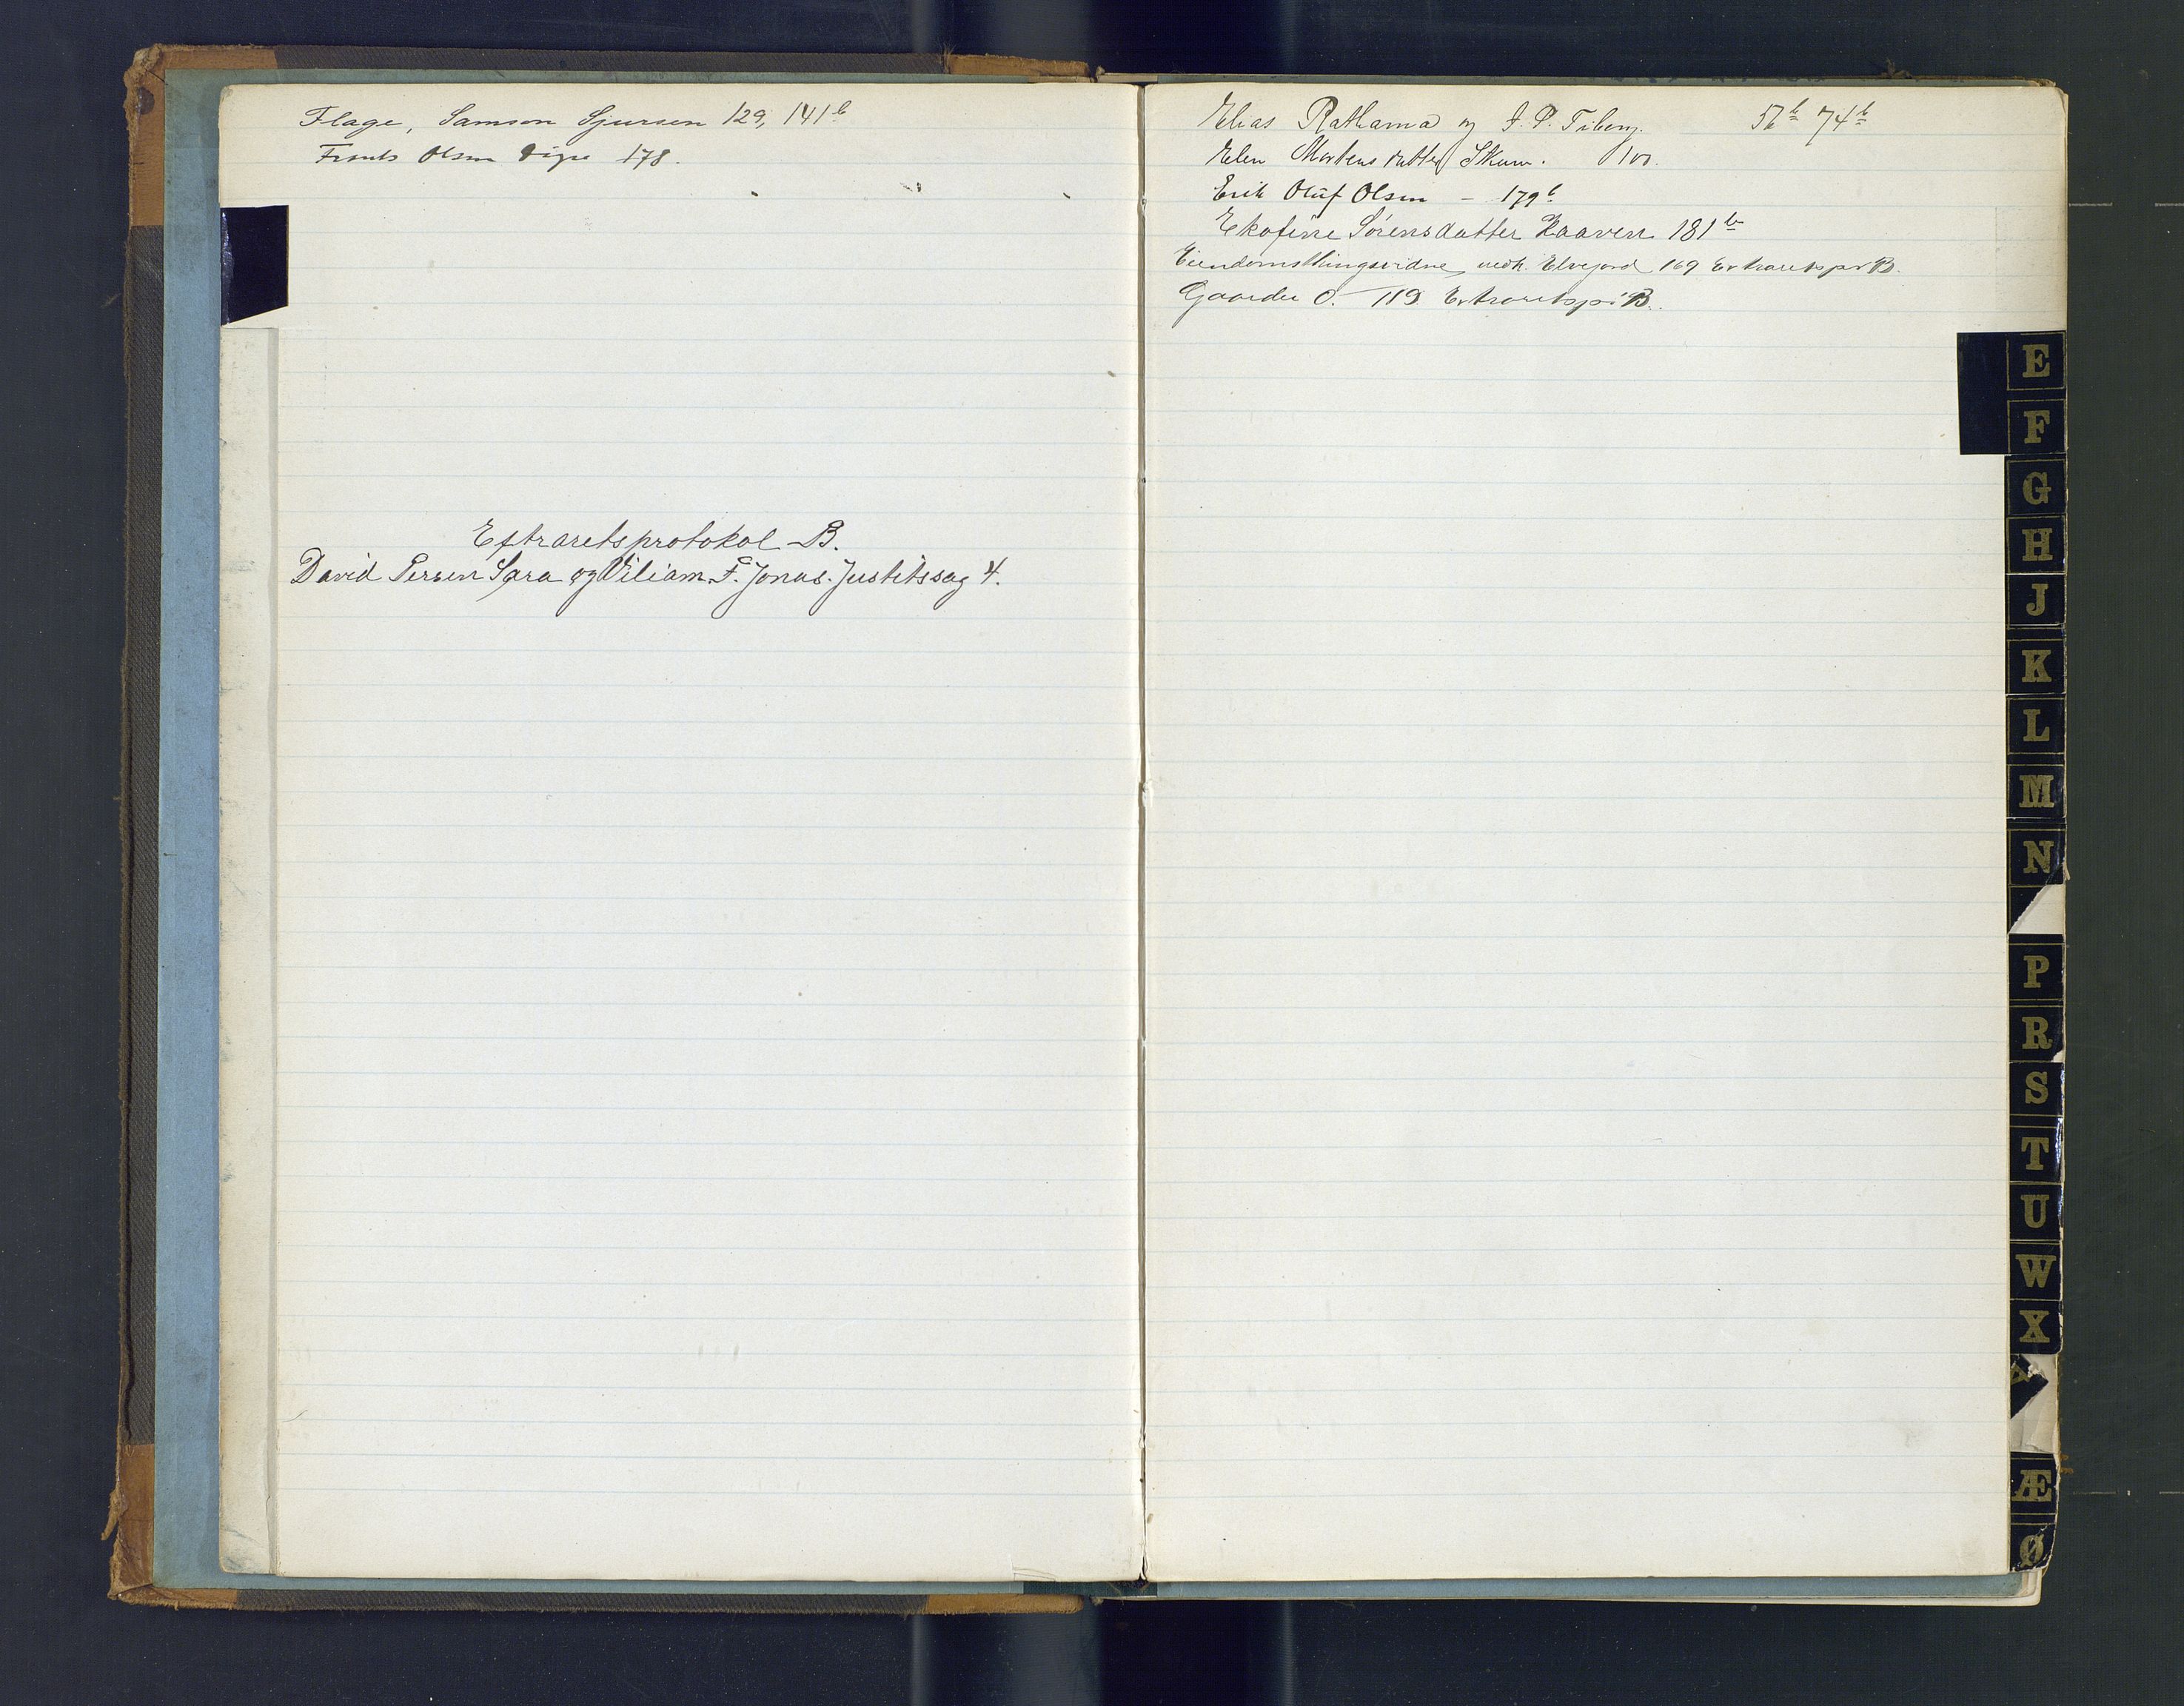 Flage, Samson Sjursen 129, 141b
Frants Olsen Vigre 178.
Extraretsprotokol B.
David Persen Sara og Viliam F. Jonas. Justitssag 4.
Elias Rathama og I. P. Tiberg. 56b 74b
Elen Mortensdatter Skum. 100.
Erik Oluf Olsen – 179b
Ekofine Sørensdatter Haaven 181b
Eiendomsthingsvidne vedk. Elvejord 169 Extraretspr B.
Gaarder O. – 119 Extraretspr B.
E
F
G
H
J
K
L
M
N
P
R
S
T
U
W
X
Y
Æ
Ø